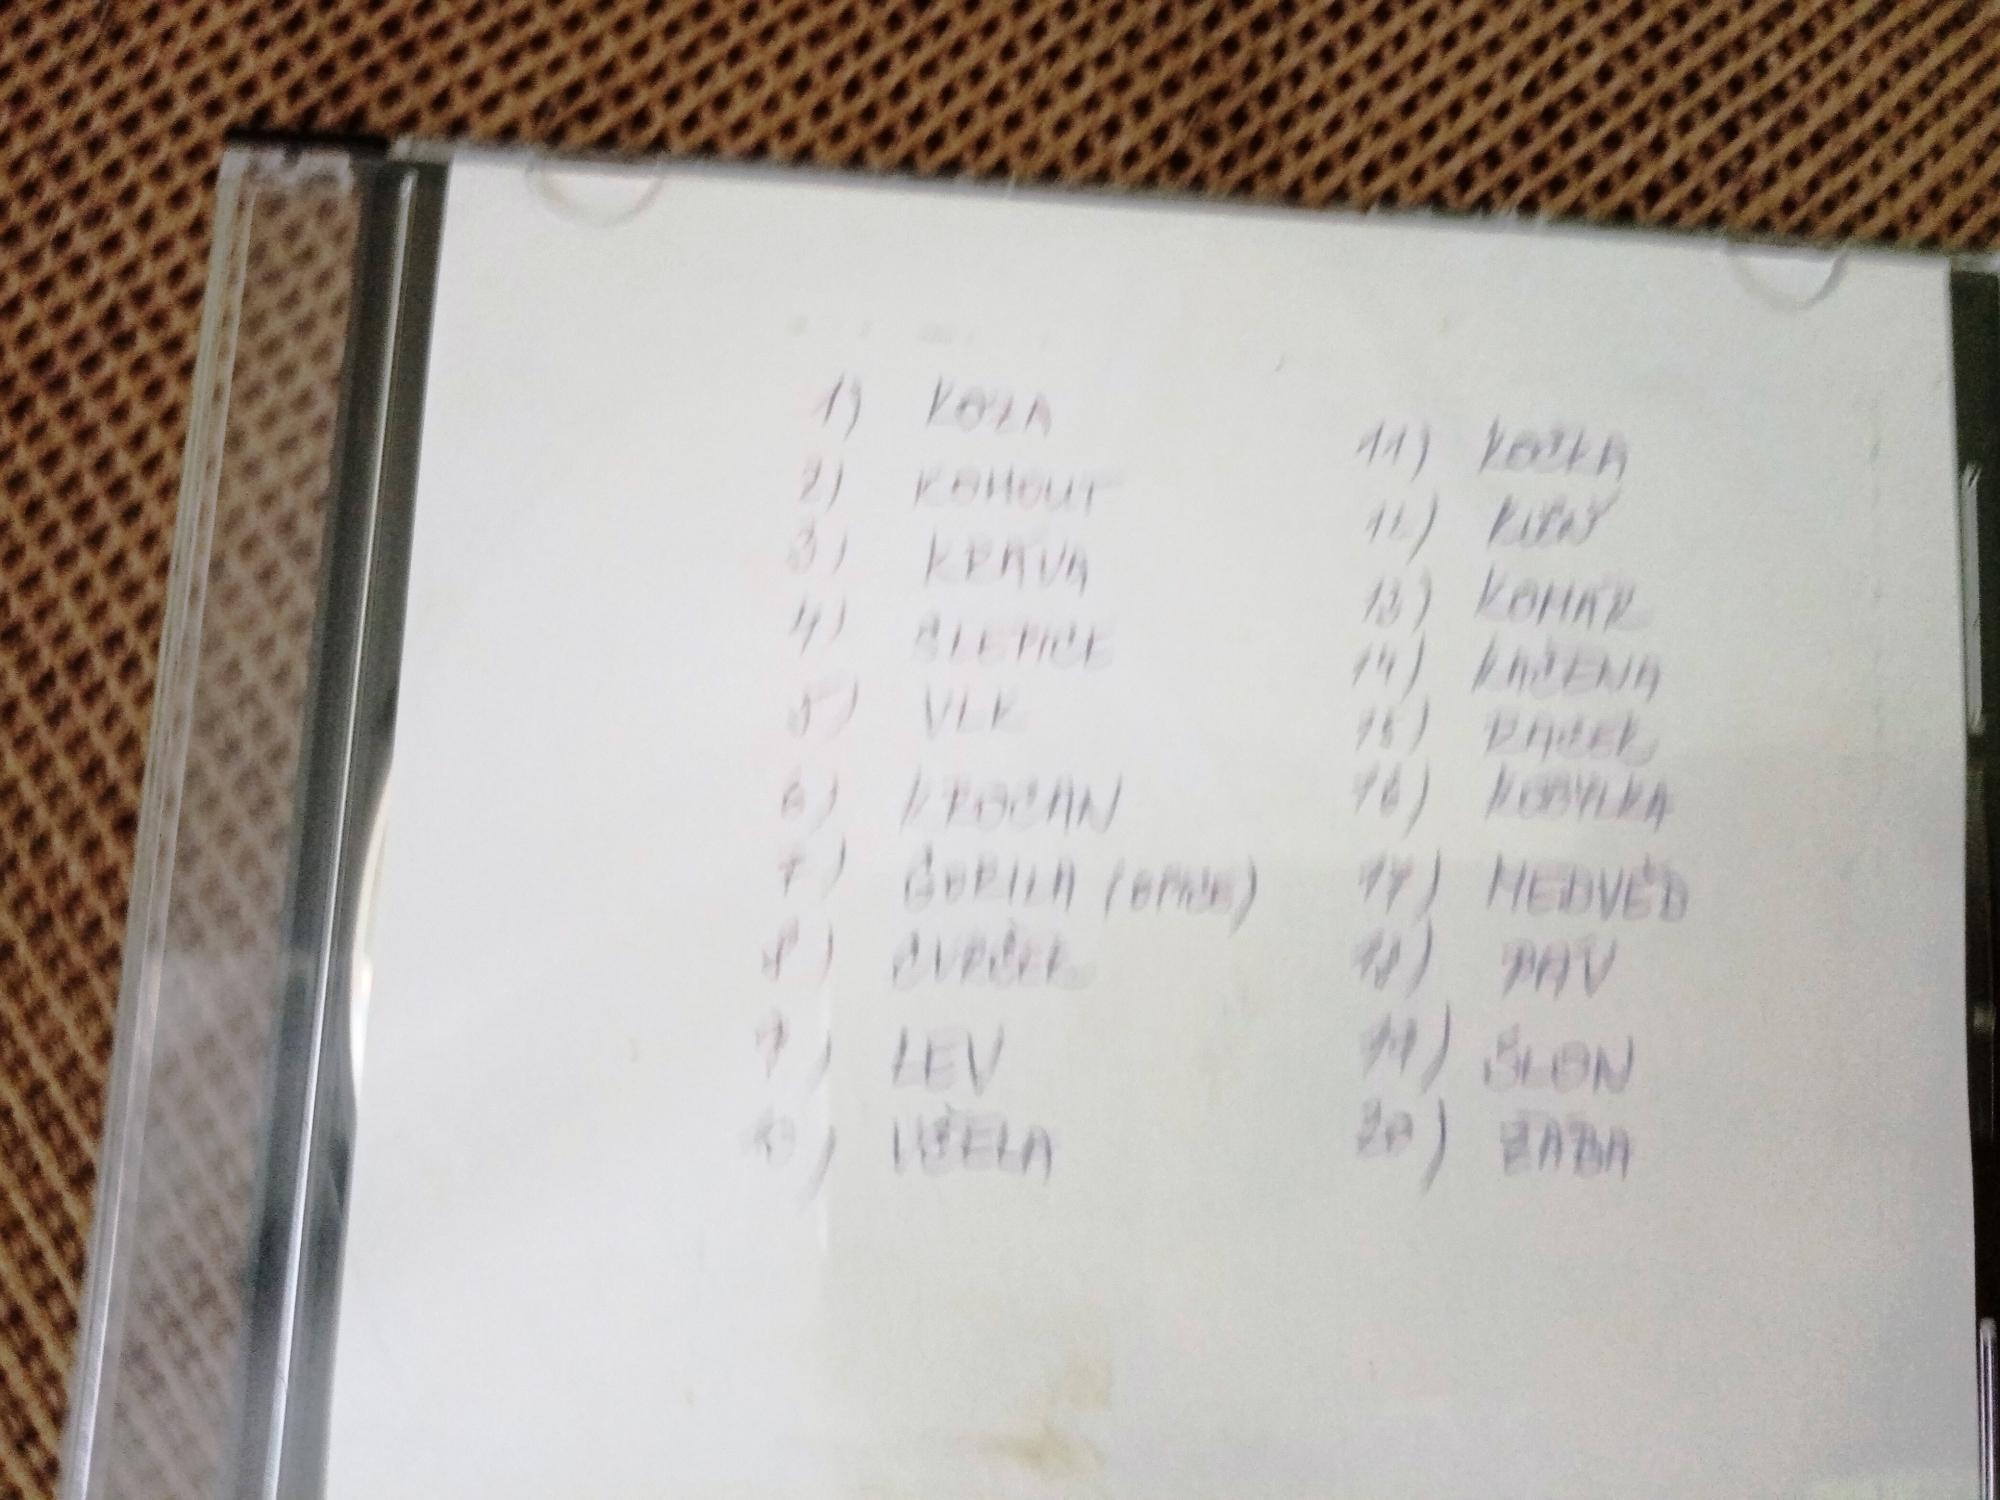 1) KOZA
2) KOHOUT
3) KRÁVA
4) SLEPICE
5) VLK
6) KROCAN
7) GORILA (OPICE)
8) CVRČEK
9) LEV
10) VČELA
11) KOČKA
12) KŮŇ
13) KOMÁR
14) KAČENA
15) RACEK
16) KOBYLKA
17) MEDVĚD
18) PÁV
19) SLON
20) ŽÁBA